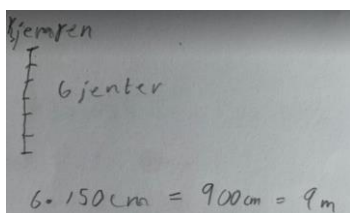 Kjempen
6 jenter
6 · 150 cm = 900 cm = 9 m